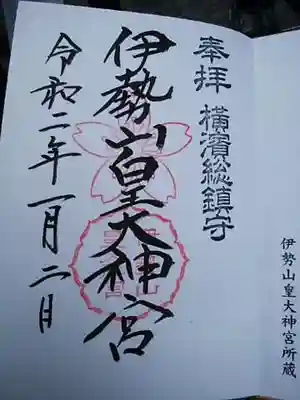 奉拝 横濱総鎮守
伊勢山皇大神宮
令和二年一月二日
伊勢山皇大神宮所蔵